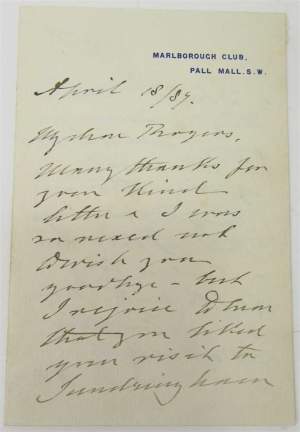 MARLBOROUGH CLUB,
PALL MALL. S.W.
April 18/87.
My dear Rogers,
Many thanks for
your kind
letter & I was
so vexed not
to wish you
goodbye – but
I rejoice to hear
that you liked
your visit to
Sandringham